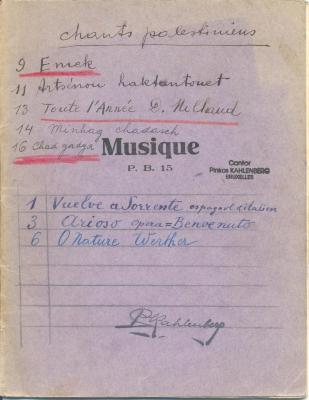 chants palestiniens
9 Emek
11 Artsénou haktantonet
13 Toute l'Année D. Milhaud
14 Minhag chadasch
16 Chad gadya
Musique
P. B. 15
Cantor
Pinkas KAHLENBERG
BRUXELLES
1 Vuelve a Sorrente espagnol italien
3 Arioso opera=Benvenuto=
6 O Nature Werther
PKahlenberg